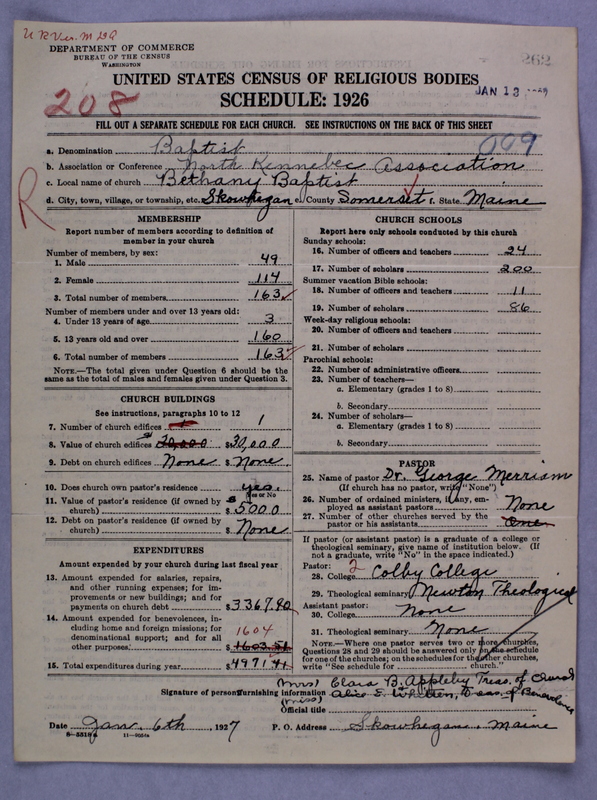 DEPARTMENT OF COMMERCE
BUREAU OF THE CENSUS
WASHINGTON
262
UNITED STATES CENSUS OF RELIGIOUS BODIES
JAN 13
208
SCHEDULE: 1926
FILL OUT A SEPARATE SCHEDULE FOR EACH CHURCH. SEE INSTRUCTIONS ON THE BACK OF THIS SHEET
009
a. Denomination Baptist
b. Association or Conference North Kennebec Association
c. Local name of church Bethany Baptist
d. City, town, village, or township, etc. Skowhegan e. County Somerset f. State Maine
R
MEMBERSHIP
Report number of members according to definition of
member in your church
Number of members, by sex:
1. Male 49
2. Female 114
3. Total number of members 163
Number of members under and over 13 years old:
4. Under 13 years of age 3
5. 13 years old and over 160
6. Total number of members 163
NOTE.—The total given under Question 6 should be the
same as the total of males and females given under Question 3.
CHURCH BUILDINGS
See instructions, paragraphs 10 to 12
7. Number of church edifices 1
8. Value of church edifices 30,000 $30,000
9. Debt on church edifices None $None
10. Does church own pastor's residence yes
Yes or No
11. Value of pastor's residence (if owned by
church) $5000
12. Debt on pastor's residence (if owned by
church) $None
EXPENDITURES
Amount expended by your church during last fiscal year
13. Amount expended for salaries, repairs,
and other running expenses; for im-
provements or new buildings; and for
payments on church debt $3367.90
14. Amount expended for benevolences, in-
cluding home and foreign missions; for
denominational support; and for all
other purposes 1604
$1603.51
15. Total expenditures during year $4971.41
CHURCH SCHOOLS
Report here only schools conducted by this church
Sunday schools:
16. Number of officers and teachers 24
17. Number of scholars 200
Summer vacation Bible schools:
18. Number of officers and teachers 11
19. Number of scholars 86
Week-day religious schools:
20. Number of officers and teachers
21. Number of scholars
Parochial schools:
22. Number of administrative officers
23. Number of teachers—
a. Elementary (grades 1 to 8)
b. Secondary
24. Number of scholars—
a. Elementary (grades 1 to 8)
b. Secondary
PASTOR
25. Name of pastor Dr. George Merriam
(If church has no pastor, write "None")
26. Number of ordained ministers, if any, em-
ployed as assistant pastors None
27. Number of other churches served by the
pastor or his assistants One
If pastor (or assistant pastor) is a graduate of a college or
theological seminary, give name of institution below. (If
not a graduate, write "No" in the space indicated.)
Pastor: 2
28. College Colby College
29. Theological seminary Newton Theological
Assistant pastor:
30. College None
31. Theological seminary None
NOTE.—Where one pastor serves two or more churches,
Questions 28 and 29 should be answered only on the schedule
for one of the churches; on the schedules for the other churches,
write "See schedule for church."
(Mrs) Clara B. Appleby Treas. of Church
Signature of person furnishing information Alice E. Whitten, Treas. of Benevolences
(Miss)
Official title
Date Jan. 6th, 1927 P. O. Address Skowhegan, Maine